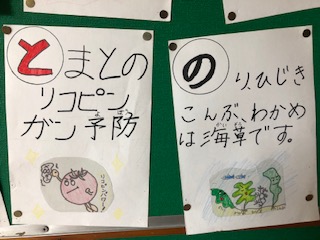 とまとの
リコピン
ガン予防
リコピンパワー!
のり、ひじき
こんぶ、わかめ
は海草です。